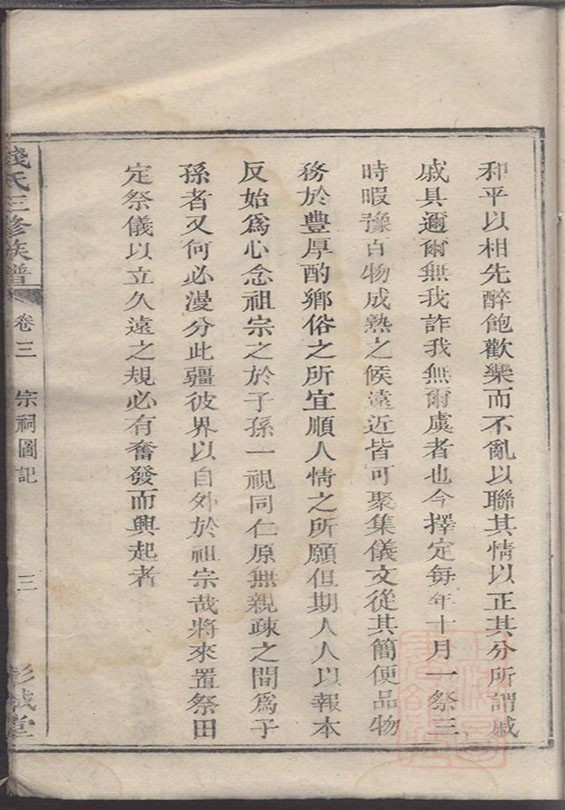 和平以相先醉飽歡樂而不亂以聯其情以正其分所謂戚
戚具邇爾無我詐我無爾虞者也今擇定每年十月一祭三
時暇豫百物成熟之候遠近皆可聚集儀文從其簡便品物
務於豐厚酌鄉俗之所宜順人情之所願但期人人以報本
反始爲心念祖宗之於子孫一視同仁原無親疎之間爲子
孫者又何必漫分此疆彼界以自外於祖宗哉將來置祭田
定祭儀以立久遠之規必有奮發而興起者
錢氏三修族譜
卷三
宗祠圖記
三
彭城堂